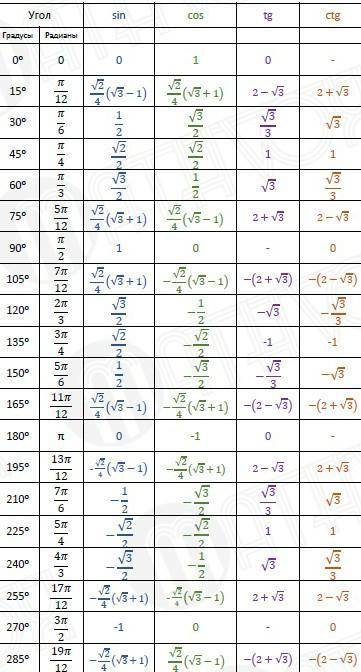 Угол sin cos tg ctg
Градусы Радианы
0° 0 0 1 0 -
15° π/12 √2/4(√3−1) √2/4(√3+1) 2−√3 2+√3
30° π/6 1/2 √3/2 √3/3 √3
45° π/4 √2/2 √2/2 1 1
60° π/3 √3/2 1/2 √3 √3/3
75° 5π/12 √2/4(√3+1) √2/4(√3−1) 2+√3 2−√3
90° π/2 1 0 - 0
105° 7π/12 √2/4(√3+1) −√2/4(√3−1) −(2+√3) −(2−√3)
120° 2π/3 √3/2 −1/2 −√3 −√3/3
135° 3π/4 √2/2 −√2/2 -1 -1
150° 5π/6 1/2 −√3/2 −√3/3 −√3
165° 11π/12 √2/4(√3−1) −√2/4(√3+1) −(2−√3) −(2+√3)
180° π 0 -1 0 -
195° 13π/12 -√2/4(√3−1) −√2/4(√3+1) 2−√3 2+√3
210° 7π/6 −1/2 −√3/2 √3/3 √3
225° 5π/4 −√2/2 −√2/2 1 1
240° 4π/3 −√3/2 −1/2 √3 √3/3
255° 17π/12 −√2/4(√3+1) −√2/4(√3−1) 2+√3 2−√3
270° 3π/2 -1 0 - 0
285° 19π/12 −√2/4(√3+1) √2/4(√3−1) −(2+√3) −(2−√3)